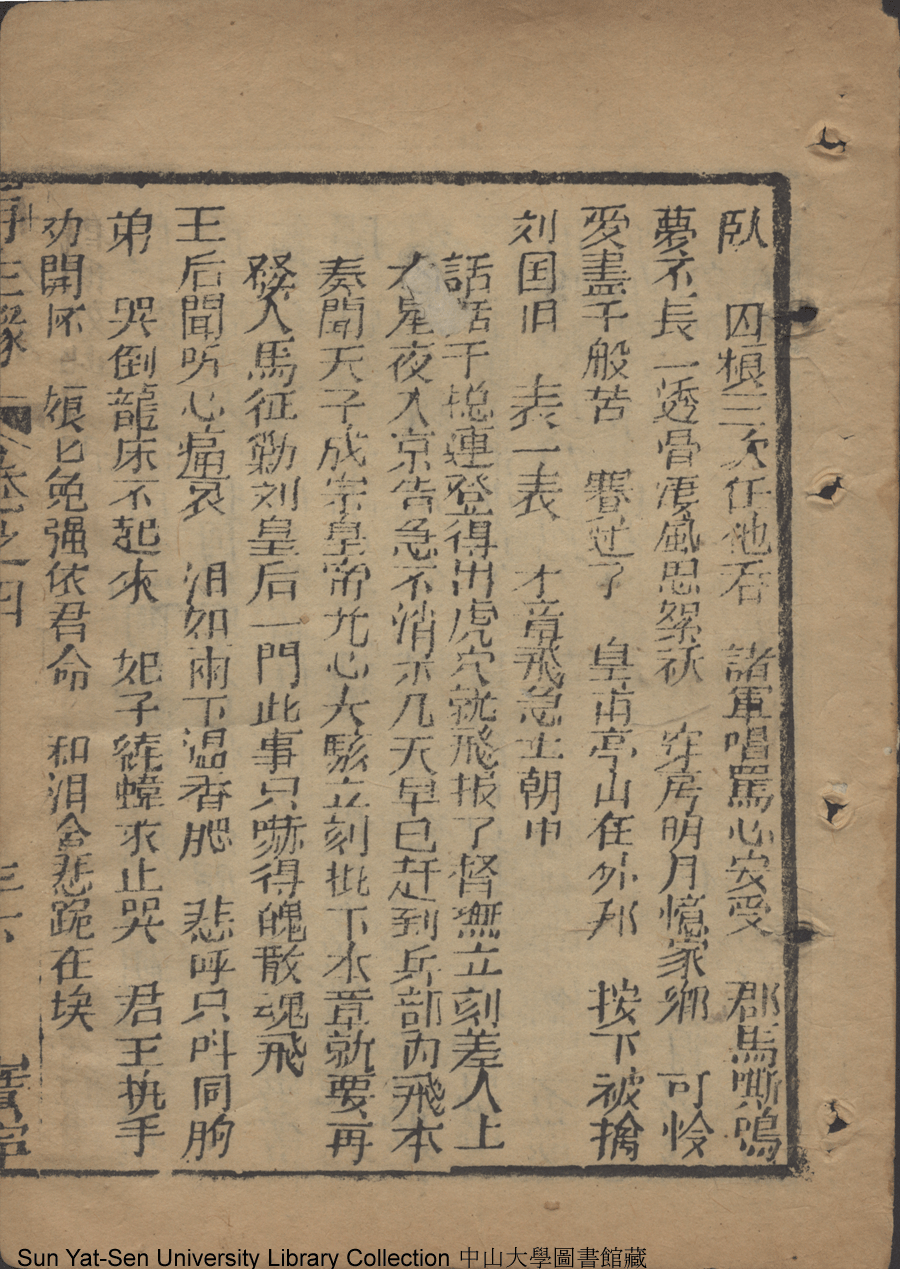 臥 囚粮三次任他吞 諸軍唱罵心安受 郡馬嘶鳴
夢不長一透骨凄風思絮袄 穿房明月憶家鄉 可怜
受盡千般苦 𮚐过了 皇甫亭山在外邦 按下被擒
刘国旧 表一表 才章飛急上朝中
話説干 連登得出虎穴就飛报了督撫立刻差人上
本星夜入京告急不消示几天早已赶到兵部内飛本
奏聞天子成宗皇帝尤心大駭立刻批下本章就要再
發人馬征勦刘皇后一門此事只嚇得魄散魂飛
王后聞听心痛哀 泪如雨下湿香腮 悲呼只叫同胞
弟 哭倒龍床不起來 妃子繞幃求止哭 君王执手
劝開怀 娘匕免强依君命 和泪含悲跪在埃
再生緣 卷之四 三六 寶寧
Sun Yat-Sen University Library Collection 中山大學圖書館藏